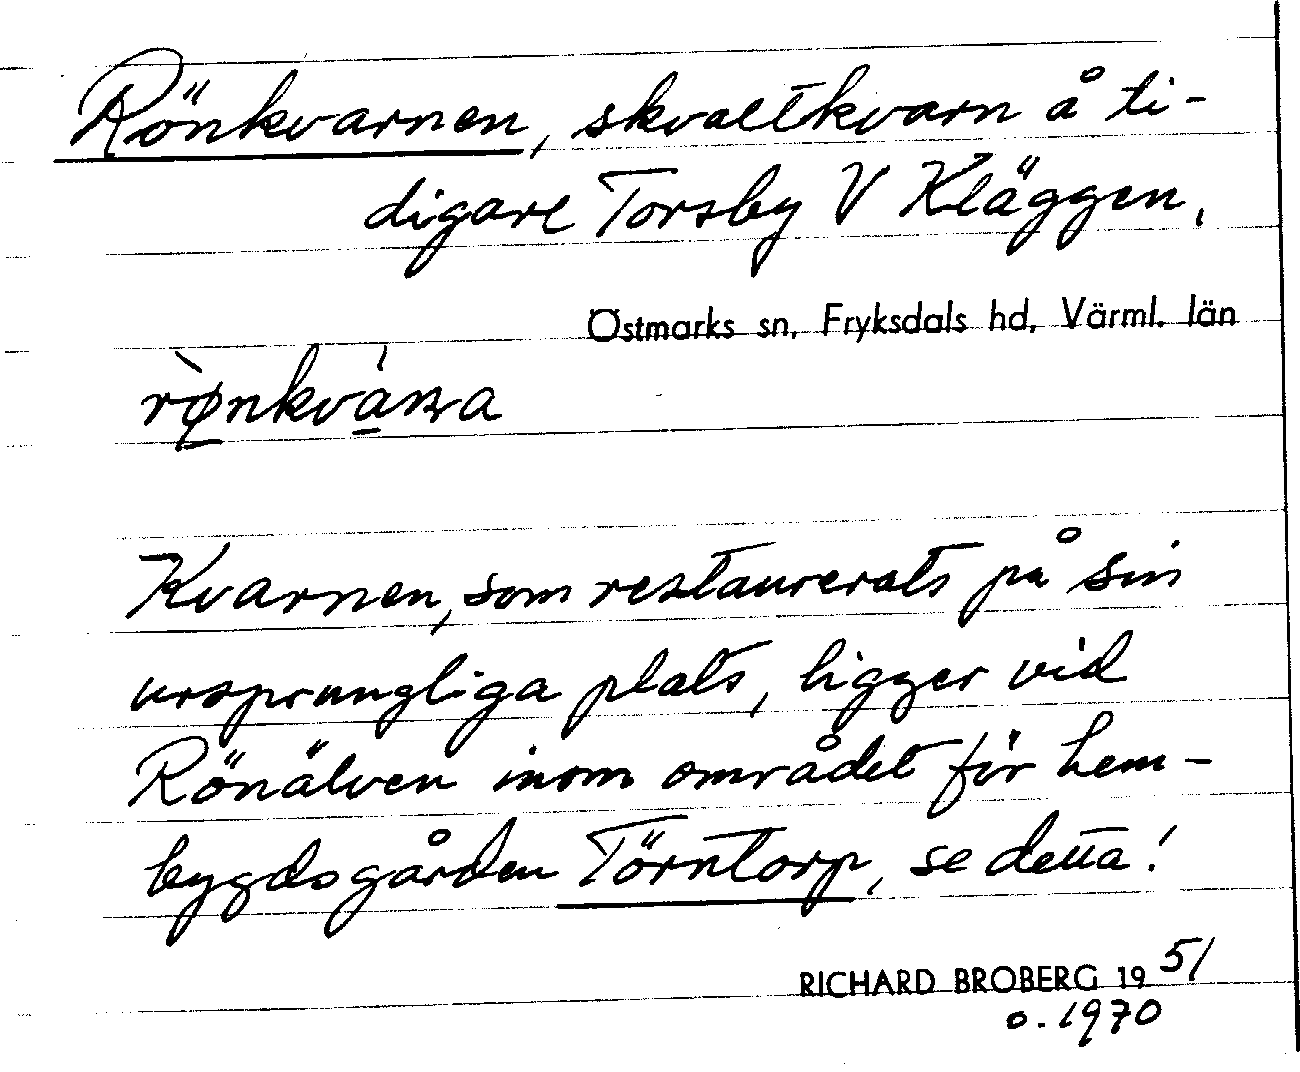 Rönkvarnen, skvaltkvarn å ti-
digare Torsby V Kläggen,
Östmarks sn, Fryksdals hd, Värml. län
Kvarnen, som restaurerats på sin
ursprungliga plats, ligger vid
Rönälven inom området för hem-
bygdsgården Törntorp, se detta!
RICHARD BROBERG 1951
o. 1970